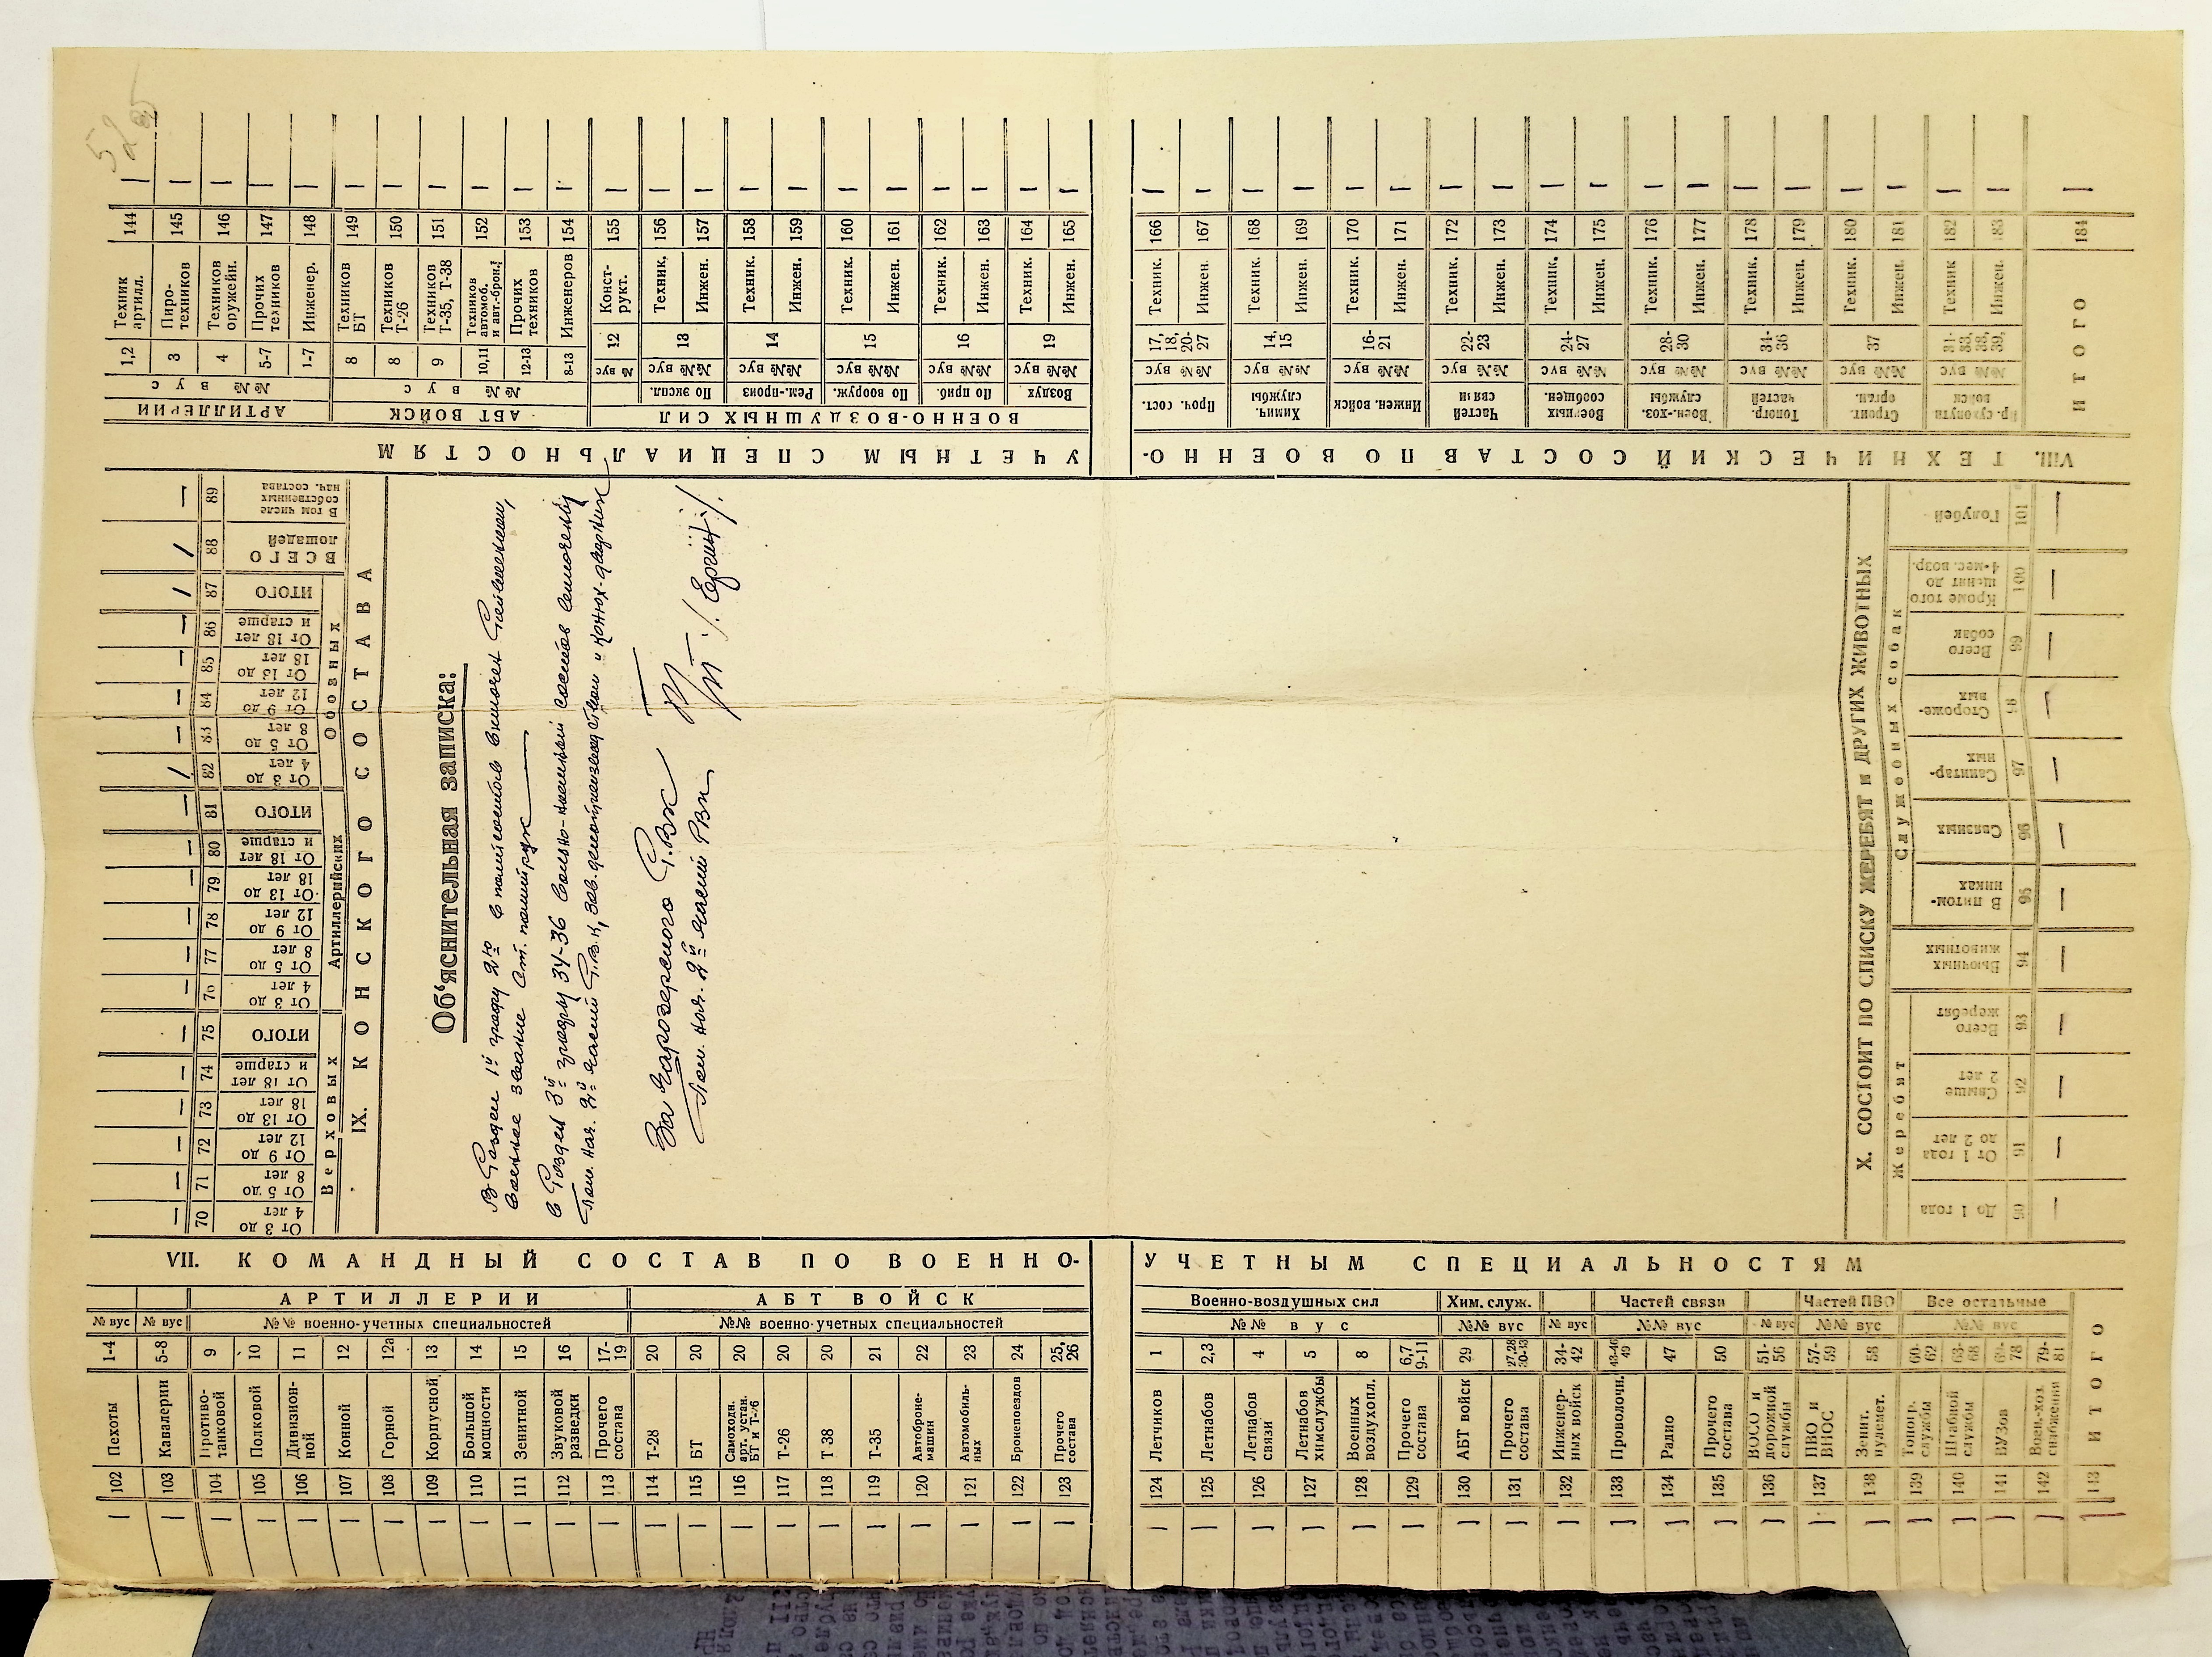 52
VII. КОМАНДНЫЙ СОСТАВ ПО ВОЕННО-УЧЕТНЫМ СПЕЦИАЛЬНОСТЯМ
АРТИЛЛЕРИИ
АБТ ВОЙСК
Военно-воздушных сил
Хим. служ.
Частей связи
Частей ПВО
Все остальные
№ вус
№ вус
№№ военно-учетных специальностей
№№ военно-учетных специальностей
№№ вус
№№ вус
№ вус
№№ вус
№ вус
№№ вус
№№ вус
1-4 Пехоты 102
5-8 Кавалерии 103
9 Противо-танковой 104
10 Полковой 105
11 Дивизион-ной 106
12 Конной 107
12а Горной 108
13 Корпусной 109
14 Большой мощности 110
15 Зенитной 111
16 Звуковой разведки 112
17-19 Прочего состава 113
20 Т-28 114
20 БТ 115
20 Самоходн. арт. устан. БТ и Т-26 116
20 Т-26 117
20 Т 38 118
21 Т-35 119
22 Автоброне-машин 120
23 Автомобиль-ных 121
24 Бронепоездов 122
25, 26 Прочего состава 123
1 Летчиков 124
2,3 Летнабов 125
4 Летнабов связи 126
5 Летнабов химслужбы 127
8 Военных воздухопл. 128
6,7 9-11 Прочего состава 129
29 АБТ войск 130
27,28 30-33 Прочего состава 131
34-42 Инженер-ных войск 132
43-46 49 Проволочн. 133
47 Радио 134
50 Прочего состава 135
51-56 ВОСО и дорожной службы 136
57-59 ПВО и ВНОС 137
58 Зенит. пулемет. 138
60-62 Топогр. службы 139
63-68 Штабной службы 140
69-78 ВУЗов 141
79-81 Воен.-хоз. снабжения 142
ИТОГО 143
VIII. ТЕХНИЧЕСКИЙ СОСТАВ ПО ВОЕННО-УЧЕТНЫМ СПЕЦИАЛЬНОСТЯМ
АРТИЛЛЕРИИ
№№ вус
1,2 Техник артилл. 144
3 Пиро-техников 145
4 Техников оружейн. 146
5-7 Прочих техников 147
1-7 Инженер. 148
АБТ ВОЙСК
№№ вус
8 Техников БТ 149
8 Техников Т-26 150
9 Техников Т-35, Т-38 151
10,11 Техников автомоб. и авт.-брон. 152
12-13 Прочих техников 153
8-13 Инженеров 154
ВОЕННО-ВОЗДУШНЫХ СИЛ
№ вус 12 Конст-рукт. 155
По экспл. №№ вус 13 Техник. 156
Инжен. 157
Рем.-произ №№ вус 14 Техник. 158
Инжен. 159
По вооруж. №№ вус 15 Техник. 160
Инжен. 161
По приб. №№ вус 16 Техник. 162
Инжен. 163
Воздух №№ вус 19 Техник. 164
Инжен. 165
Проч. сост. №№ вус 17, 18, 20-27 Техник. 166
Инжен. 167
Химич. службы №№ вус 14, 15 Техник. 168
Инжен. 169
Инжен. войск №№ вус 16-21 Техник. 170
Инжен. 171
Частей связи №№ вус 22-23 Техник. 172
Инжен. 173
Военных сообщен. №№ вус 24-27 Техник. 174
Инжен. 175
Воен.-хоз. службы №№ вус 28-30 Техник. 176
Инжен. 177
Топогр. частей №№ вус 34-36 Техник. 178
Инжен. 179
Строит. орган. №№ вус 37 Техник. 180
Инжен. 181
войск №№ вус Техник 182
Инжен. 183
ИТОГО 184
IX. КОНСКОГО СОСТАВА
Верховых
От 3 до 4 лет 70
От 5 до 8 лет 71
От 9 до 12 лет 72
От 13 до 18 лет 73
От 18 лет и старше 74
ИТОГО 75
Артиллерийских
От 3 до 4 лет 76
От 5 до 8 лет 77
От 9 до 12 лет 78
От 13 до 18 лет 79
От 18 лет и старше 80
ИТОГО 81
Обозных
От 3 до 4 лет 82
От 5 до 8 лет 83
От 9 до 12 лет 84
От 13 до 18 лет 85
От 18 лет и старше 86
ИТОГО 87
ВСЕГО лошадей 88
В том числе собственных нач. состава 89
Об'яснительная записка:
В Раздел 1й графу 2ю в политсостав включен
Военное звание Ст. политрук
в Раздел 3й графы 34-36 вольно-наемный состав
Пом. нач. 2й части Р.В.К, зав. делопроизводством и конюх-дворник
За Чарозерского Р.Вк
Пом. нач. 2й части РВк
X. СОСТОИТ ПО СПИСКУ ЖЕРЕБЯТ и ДРУГИХ ЖИВОТНЫХ
Жеребят
До 1 года 90
От 1 года до 2 лет 91
Свыше 2 лет 92
Всего жеребят 93
Вьючных животных 94
Служебных собак
В питом-никах 95
Связных 96
Санитар-ных 97
Стороже-вых 98
Всего собак 99
Кроме того щенят до 4-мес. возр. 100
Голубей 101